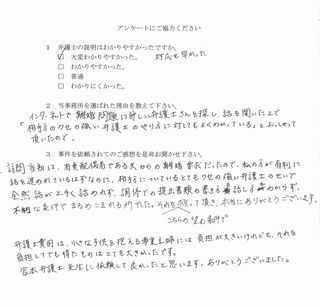 アンケートにご協力ください
1 弁護士の説明はわかりやすかったですか。
☑ 大変わかりやすかった。 対応も早かった
□ わかりやすかった。
□ 普通
□ わかりにくかった。
2 当事務所を選ばれた理由を教えて下さい。
インターネットで離婚問題に詳しい弁護士さんを探し、話を聞いた上で
「相手方のクセの強い弁護士のやり方に対してもよくわかっている」とおっしゃって
頂いたので。
3 事件を依頼されてのご感想を是非お聞かせ下さい。
訪問当初は、有責配偶者である夫からの離婚要求だったので、私の方が有利に
話を進められているはずなのに、相手方についているとてもクセの強い弁護士のせいで
全然話が上手く詰められず、調停での提出書類の書き方もわからず、
不利な条件でまるめこまれる所でした。それを救って頂き、本当にありがとうございます。
こちらの望む条件で
弁護士費用は、小さな子供を抱える専業主婦には負担が大きいけれども、それを
負担してでも得たものはとても大きかったです。
宮本弁護士先生に依頼して良かったと思います。ありがとうございました。